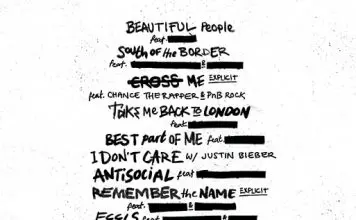 BEAUTIFUL People
feat.
South of the BORDER
feat. &
CROSS ME EXPLICIT
feat. CHANCE THE RAPPER & PnB ROCK
TAKE Me BACK TO LONDON
feat.
BEST part of ME feat.
I DON'T CARE w/ JUSTIN BIEBER
ANTISOCIAL feat
REMEMBER the NAME EXPLICIT
feat. &
FEELS feat. &